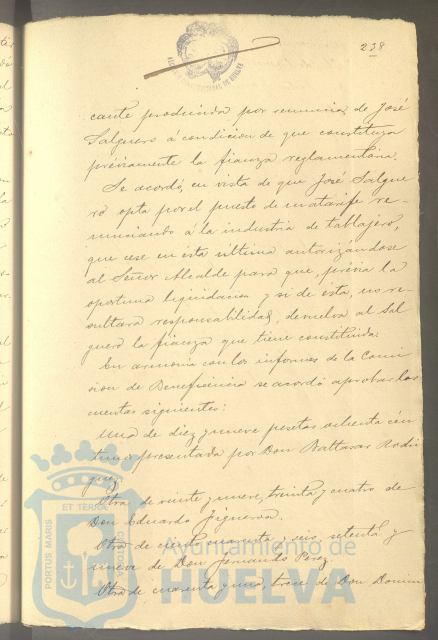 238
cante producida por renuncia de José
Salguero á condicion de que constituya
préviamente la fianza reglamentaria.
Se acordó, en vista de que José Salgue
ro opta por el puesto de matarife re-
nunciando á la industria de tablajero,
que cese en esta última autorizándose
al Señor Alcalde para que, prévia la
oportuna liquidacion y si de ésta, no re-
sultara responsabilidad, devuelva al Sal
guero la fianza que tiene constituida.
En armonia con los informes de la Comi
sion de Beneficencia se acordó aprobar las
cuentas siguientes:
Una de diez y nueve pesetas ochenta cén
timos presentada por Don Baltasar Rodri
guez.
Otra de veinte y nueve, treinta y cuatro de
Don Eduardo Figueroa.
Otra de ciento cuarenta y seis, setenta y
nueve de Don Fernando Perez.
Otra de cuarenta y una, trece de Don Domin
PORTUS MARIS
ET TERRAE
CUSTODIA
Ayuntamiento de
HUELVA